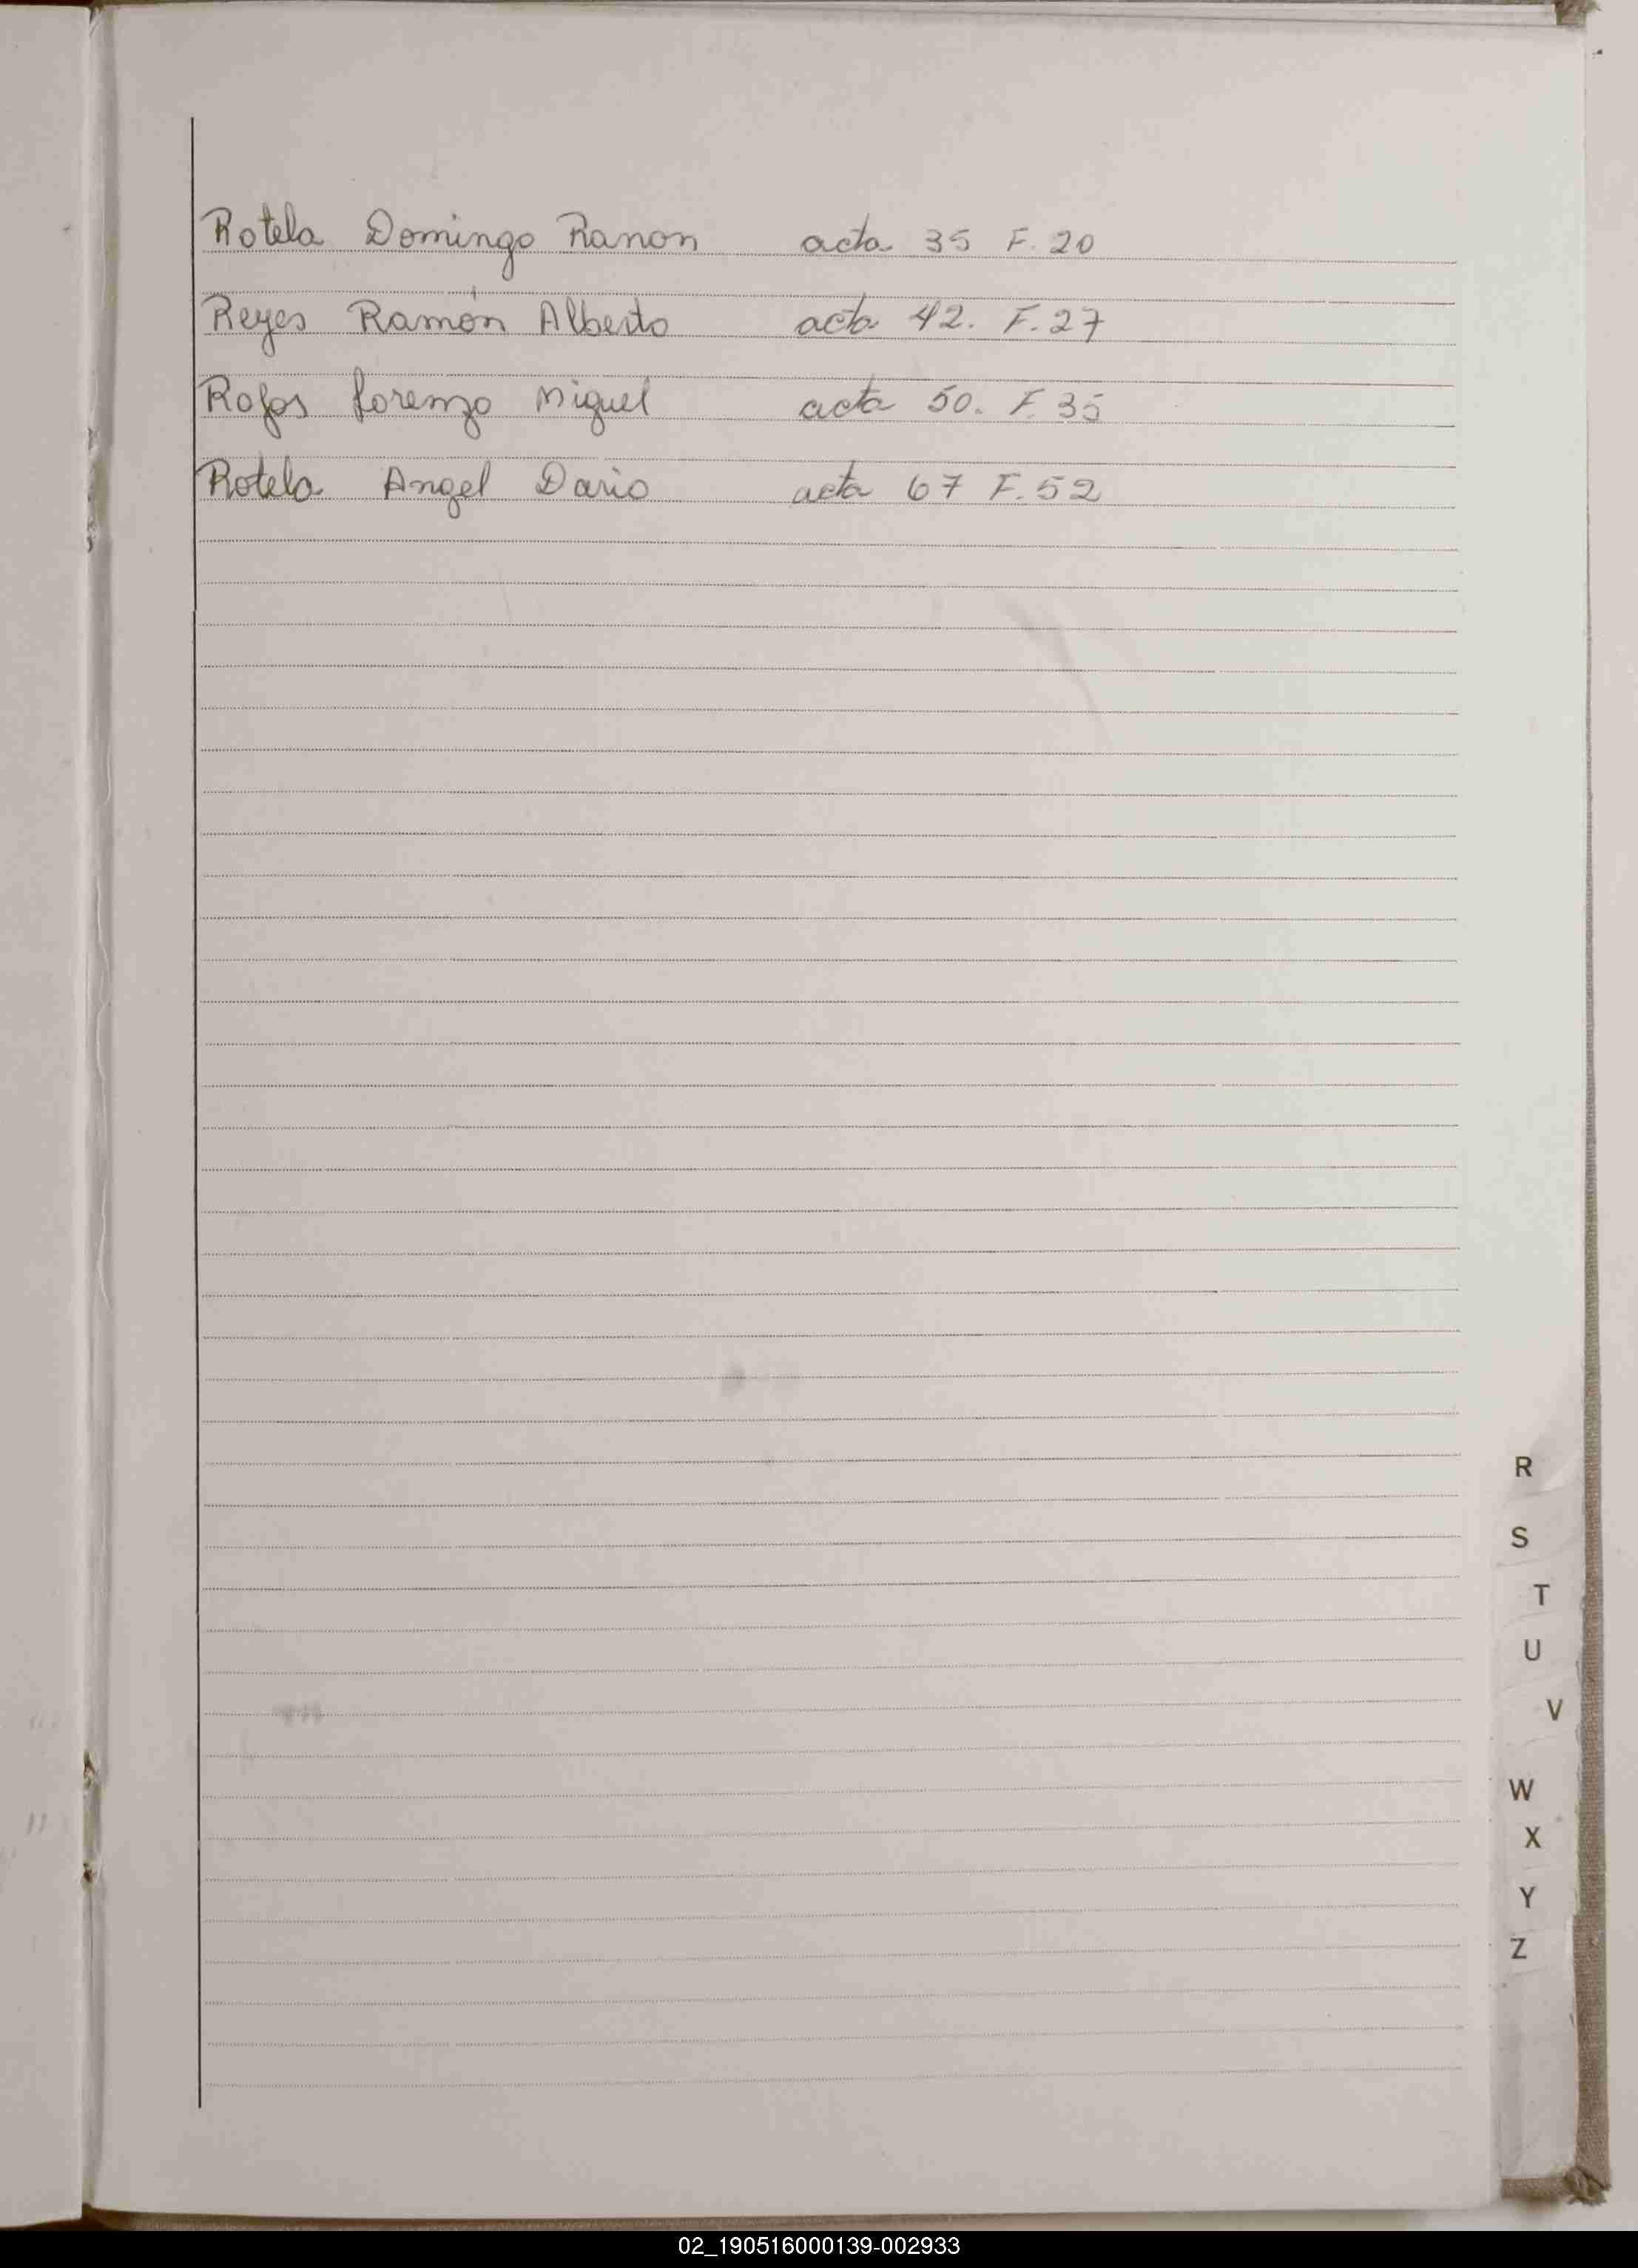 Rotela Domingo Ranon acta 35 F. 20
Reyes Ramón Alberto acta 42. F. 27
Rojas Lorenzo Miguel acta 50. F. 35
Rotela Angel Dario acta 67 F. 52
R
S
T
U
V
W
X
Y
Z
02_190516000139-002933